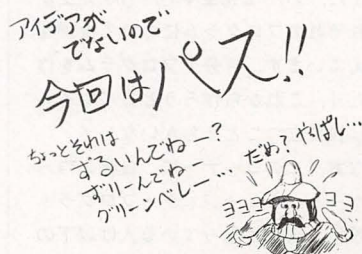 アイデアが
でないので
今回はパス!!
ちょっとそれは
ずるいんでねー?
ずりーんでねー
グリーンベレー…
だめ?やっぱし…
ヨヨヨ
ヨヨ